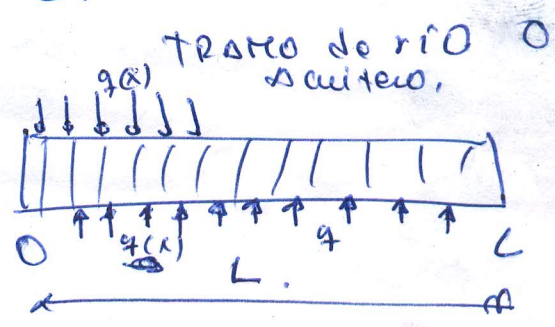 TRAMO de río O
Acuífero.
q(x)
O q(x) q L
L.